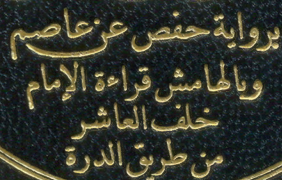 برواية حفص عن عاصم
وبالهامش قراءة الإمام
خلف العاشر
من طريق الدرة